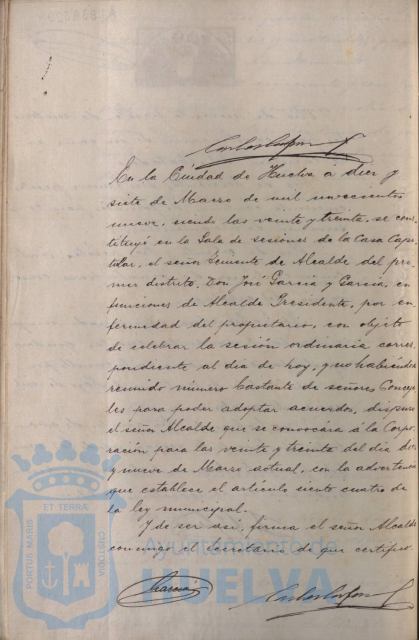 En la Ciudad de Huelva á diez y
siete de Marzo de mil novecientos
nueve, siendo las veinte y treinta, se cons-
tituyó en la Sala de sesiones de la Casa Capi-
tular, el señor Teniente de Alcalde del pri-
mer distrito, Don José Garcia y Garcia, en
funciones de Alcalde Presidente, por en-
fermedad del propietario, con objeto
de celebrar la sesión ordinaria corres
pondiente al dia de hoy, y no habiéndose
reunido número bastante de señores Conceja
les para poder adoptar acuerdos, dispuso
el señor Alcalde que se convocára á la Corpo-
ración para las veinte y treinta del dia diez
y nueve de Marzo actual, con la advertencia
que establece el artículo ciento cuatro de
la ley municipal.
Y de ser asi, firma el señor Alcalde
conmigo el Secretario de que certifico.
Garcia
PORTUS MARIS
ET TERRAE
CUSTODIA
Ayuntamiento de
HUELVA